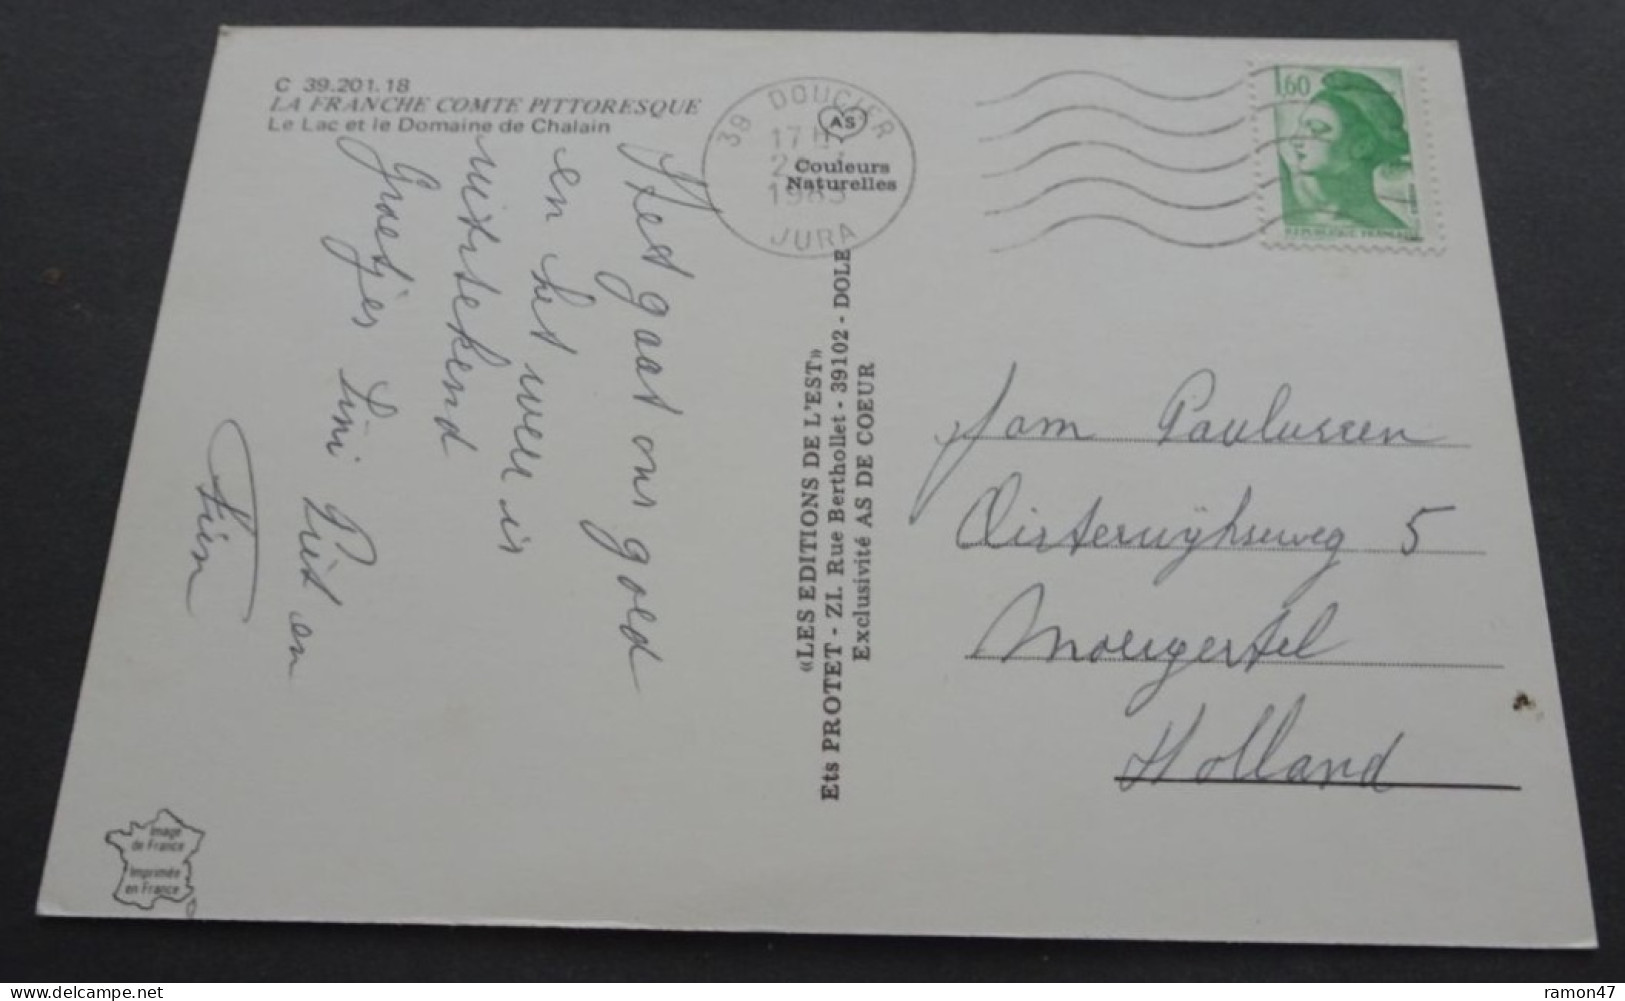 C 39.201.18
LA FRANCHE COMTE PITTORESQUE
Le Lac et le Domaine de Chalain
Het gaat ons goed
en het weer is
uitstekend
Groetjes Lini Piet en
39 DOUCIER
17 H
1985
JURA
AS
Couleurs
Naturelles
1,60
REPUBLIQUE FRANCAISE
«LES EDITIONS DE L'EST»
Ets PROTET - ZI. Rue Berthollet - 39102 - DOLE
Exclusivité AS DE COEUR
Fam Paulussen
Oisterwijkseweg 5
Moergestel
Holland
Image
de France
Imprimée
en France
ramon47